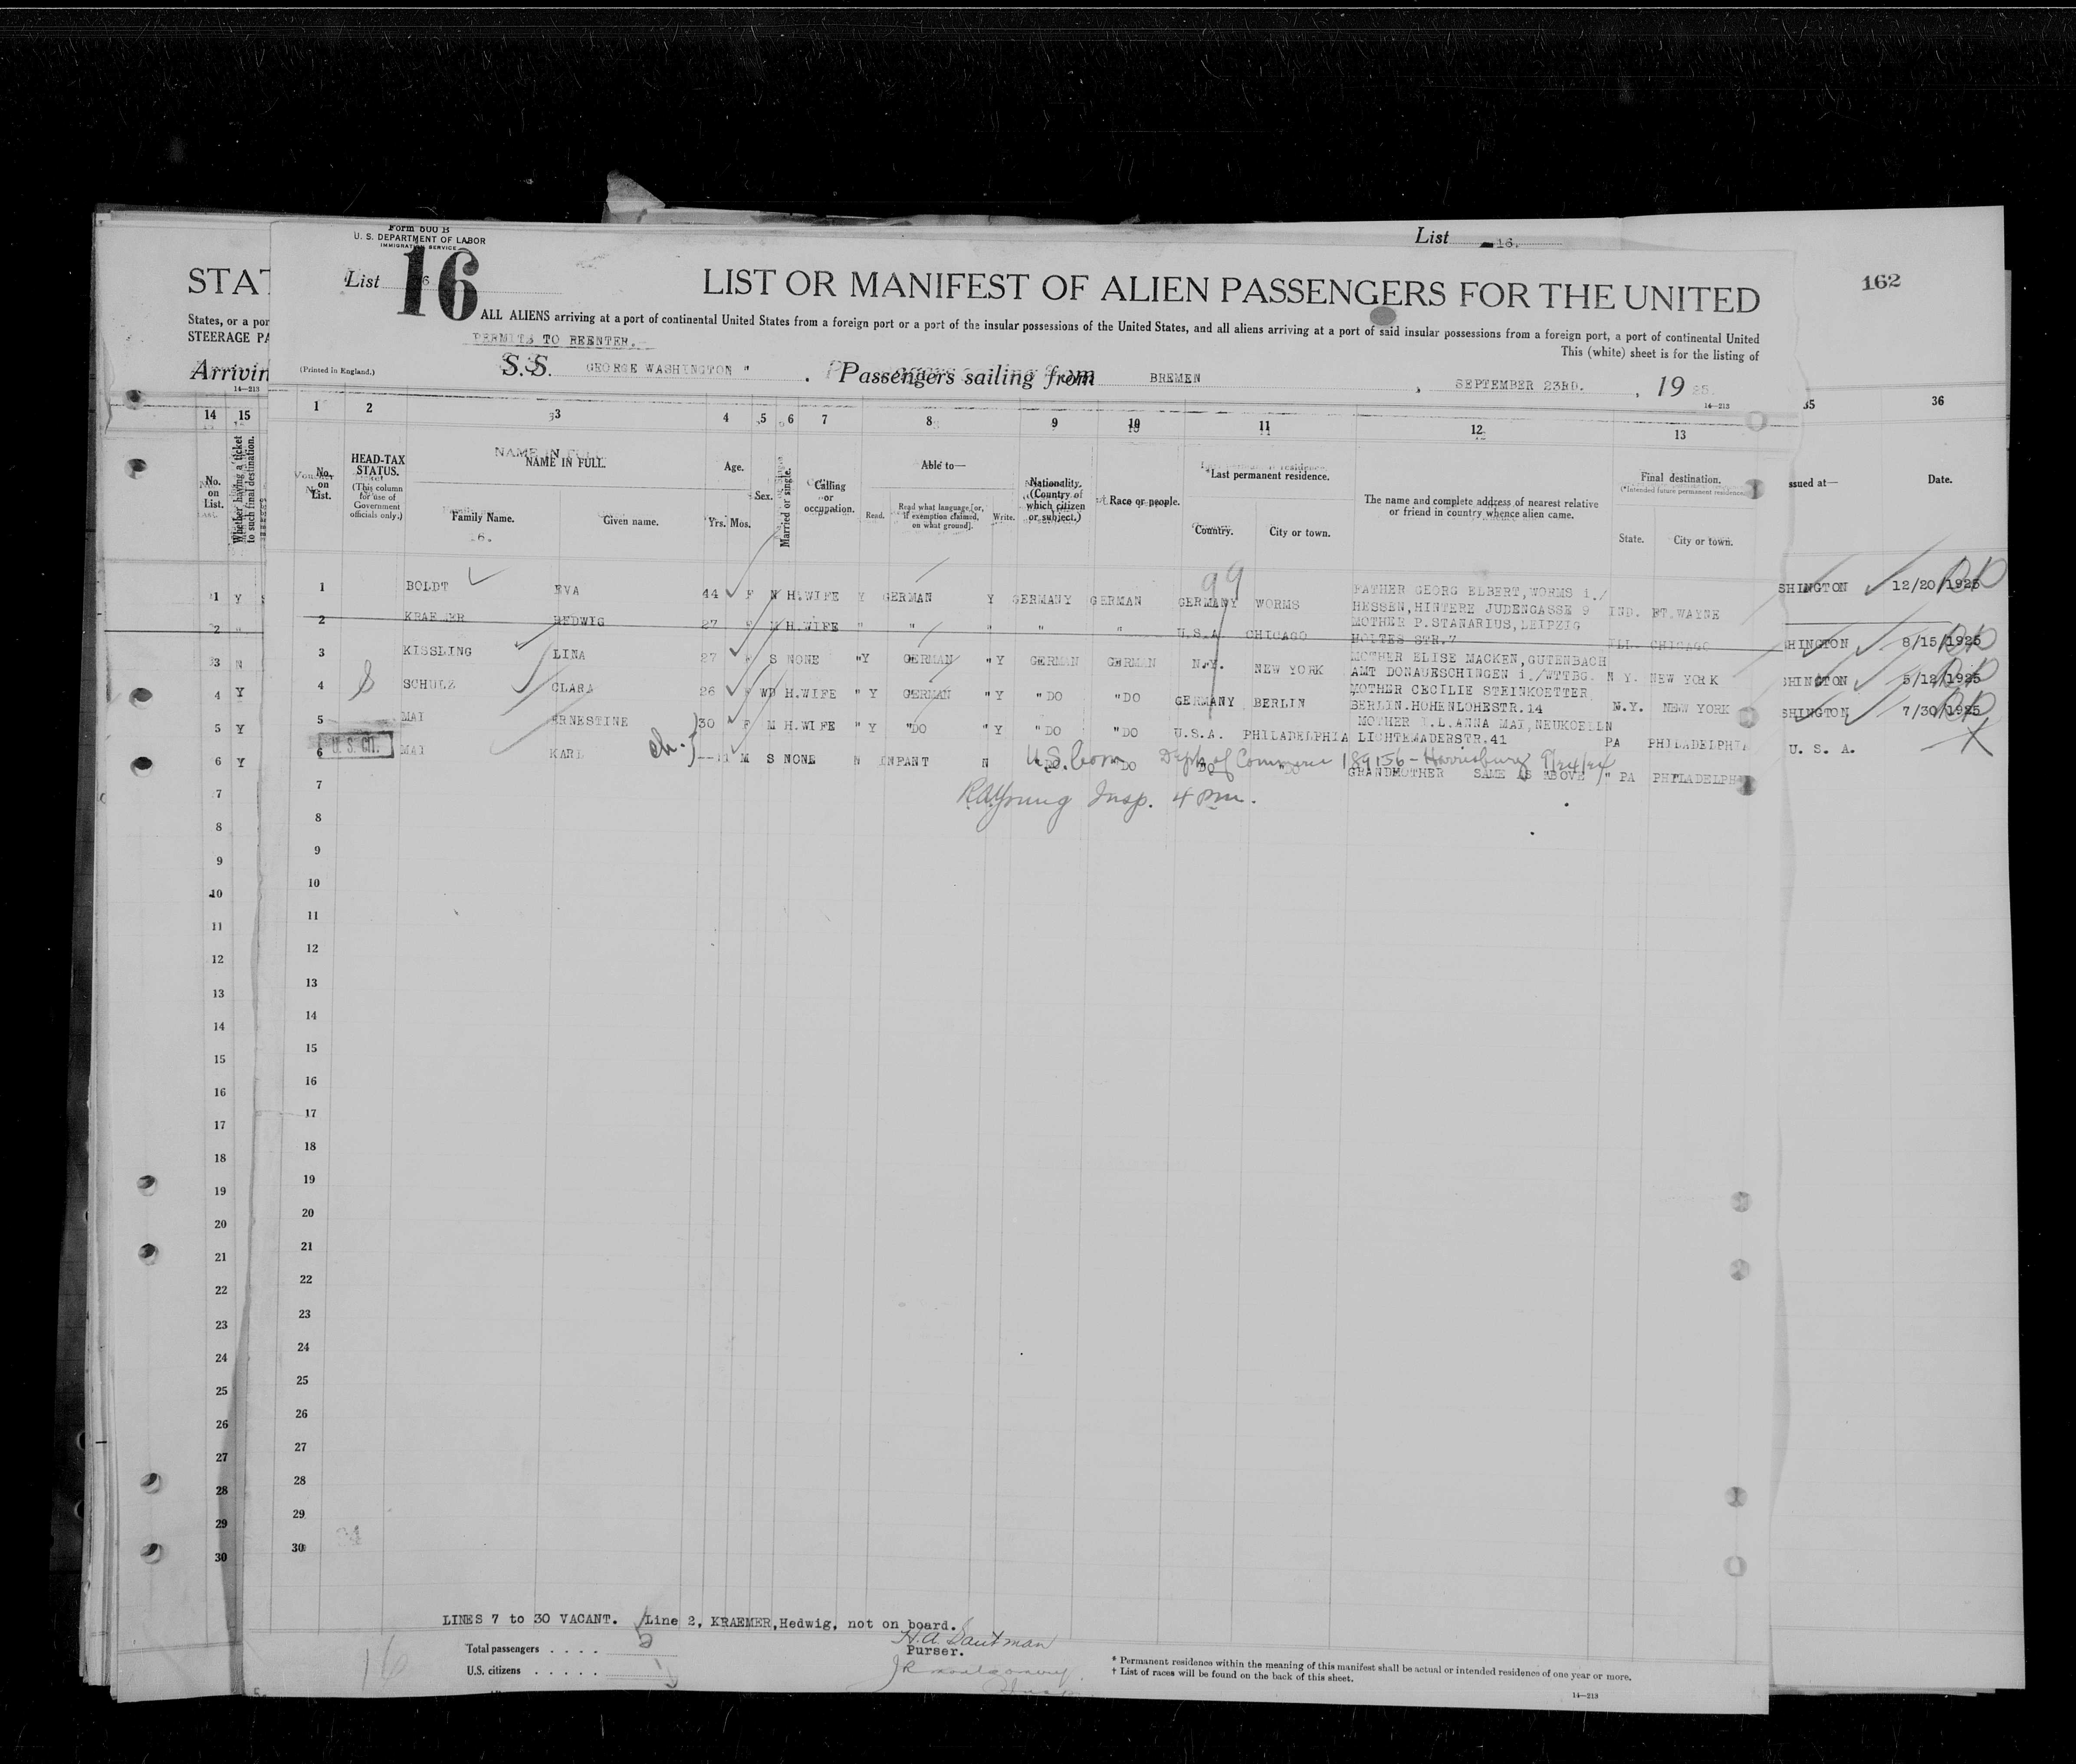 Form 500 B
U. S. DEPARTMENT OF LABOR
IMMIGRATION SERVICE
List 16.
List 16
LIST OR MANIFEST OF ALIEN PASSENGERS FOR THE UNITED
162
STAT
ALL ALIENS arriving at a port of continental United States from a foreign port or a port of the insular possessions of the United States, and all aliens arriving at a port of said insular possessions from a foreign port, a port of continental United
States, or a por
STEERAGE PA
PERMITS TO REENTER.
This (white) sheet is for the listing of
Arrivin
(Printed in England.)
S.S. GEORGE WASHINGTON " . Passengers sailing from BREMEN , SEPTEMBER 23RD. , 19 25.
14—213
14—213
14 15 1 2 3 4 5 6 7 8 9 10 11 12 13 35 36
No. on List.
Whether having a ticket to such final destination.
No. on List.
HEAD-TAX STATUS. (This column for use of Government officials only.)
NAME IN FULL.
Family Name. Given name.
Age.
Yrs. Mos.
Sex.
Married or single.
Calling or occupation.
Able to—
Read. Read what language [or, if exemption claimed, on what ground]. Write.
Nationality. (Country of which citizen or subject.)
Race or people.
*Last permanent residence.
Country. City or town.
The name and complete address of nearest relative or friend in country whence alien came.
Final destination.
(*Intended future permanent residence)
State. City or town.
ssued at—
Date.
1 Y 1 BOLDT EVA 44 F M H.WIFE Y GERMAN Y GERMANY GERMAN GERMANY WORMS FATHER GEORG ELBERT, WORMS i./ HESSEN, HINTERE JUDENGASSE 9 IND. FT.WAYNE SHINGTON 12/20/1925
99
2 " 2 KRAEMER HEDWIG 27 F M H.WIFE " " " " " U.S.A CHICAGO MOTHER P.STANARIUS, LEIPZIG HOLTES STR.7 ILL. CHICAGO
3 N 3 KISSLING LINA 27 F S NONE "Y GERMAN "Y GERMAN GERMAN N.Y. NEW YORK MOTHER ELISE MACKEN, GUTENBACH AMT DONAUESCHINGEN i./WTTBG. N Y. NEW YORK SHINGTON 8/15/1925
4 Y 4 SCHULZ CLARA 26 F WD H.WIFE " Y GERMAN " Y " DO "DO GERMANY BERLIN MOTHER CECILIE STEINKOETTER BERLIN.HOHENLOHESTR.14 N.Y. NEW YORK SHINGTON 5/12/1925
5 Y 5 MAI ERNESTINE 30 F M H.WIFE " Y "DO " Y " DO "DO U.S.A. PHILADELPHIA MOTHER I.L.ANNA MAI, NEUKOELLN LICHTEMADERSTR.41 PA PHILADELPHIA SHINGTON 7/30/1925
6 Y U. S. CIT. 6 MAI KARL ch. --11 M S NONE N INFANT N " DO "DO DO "DO GRANDMOTHER SAME AS ABOVE " PA PHILADELPH U. S. A.
U.S. born Dept. of Commerce 189156 - Harrisburg 9/24/24
RAYoung Insp. 4 pm.
7 7
8 8
9 9
10 10
11 11
12 12
13 13
14 14
15 15
16 16
17 17
18 18
19 19
20 20
21 21
22 22
23 23
24 24
25 25
26 26
27 27
28 28
29 29
30 30
LINES 7 to 30 VACANT. Line 2, KRAEMER,Hedwig, not on board.
16
Total passengers . . . . 5
Purser.
U.S. citizens . . . . .
* Permanent residence within the meaning of this manifest shall be actual or intended residence of one year or more.
† List of races will be found on the back of this sheet.
14—213